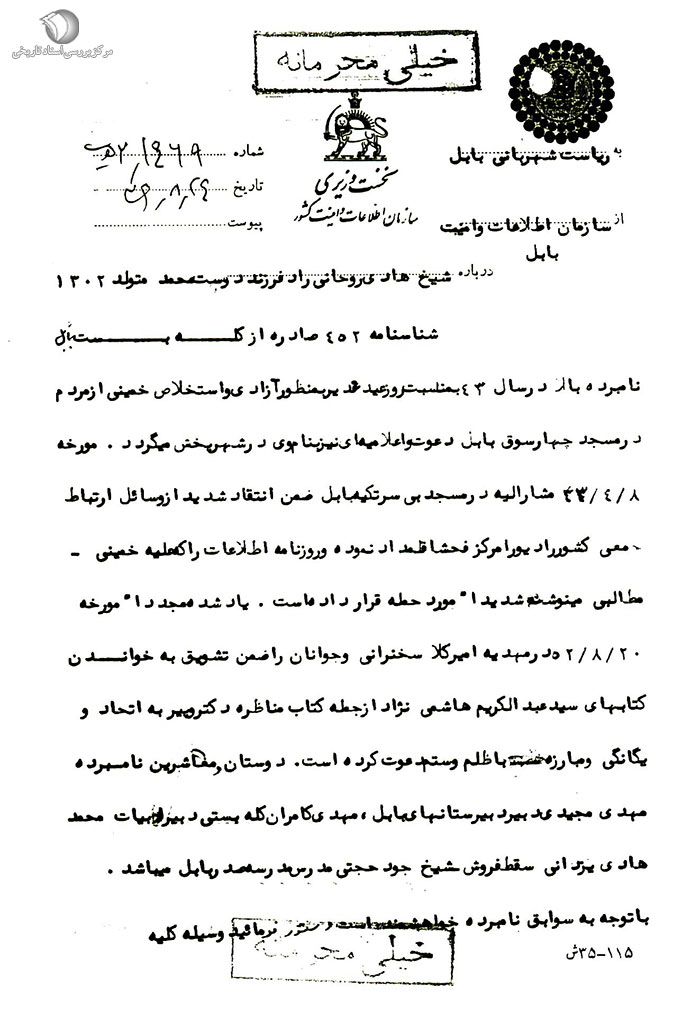 مرکز بررسی اسناد تاریخی
خیلی محرمانه
به ریاست شهربانی بابل
شماره
تاریخ
پیوست
نخست وزیری
سازمان اطلاعات و امنیت کشور
از سازمان اطلاعات وامنیت
بابل
درباره شیخ هادی روحانی راد فرزند دوست محمد متولد ۱۳۰۲
شناسنامه ۴۵۲ صادره از کله بست بابل
نامبرده بالا در سال ۴۳ بمناسبت روز عید غدیر بمنظور آزادی واستخلاص خمینی از مردم
در مسجد چهارسوق بابل دعوت واعلامیه ای نیز بنام وی در شهر پخش میگردد . مورخه
۴۳/۴/۸ مشارالیه در مسجد بی سر تکیه بابل ضمن انتقاد شدید از وسائل ارتباط
جمعی کشور رادیو را مرکز فحشا قلمداد نموده وروزنامه اطلاعات را که علیه خمینی -
مطالبی مینوشته شدیدا" مورد حمله قرار داده است . یاد شده مجددا" مورخه
۵۲/۸/۲۰ در مهدیه امیرکلا سخنرانی وجوانان را ضمن تشویق به خواندن
کتابهای سید عبدالکریم هاشمی نژاد از جمله کتاب مناظره دکتر وپیر به اتحاد و
یگانگی ومبارزه با ظلم وستم دعوت کرده است. دوستان ومعاشرین نامبرده
مهدی مجیدی دبیر دبیرستانهای بابل ، مهدی کامران کله بستی دبیر ادبیات محمد
هادی یزدانی سقط فروش شیخ جود حجتی مدرس مدرسه صدر بابل میباشد .
باتوجه به سوابق نامبرده خواهشمند است دستور فرمائید وسیله کلیه
خیلی محرمانه
۱۱۵-۳۵ش